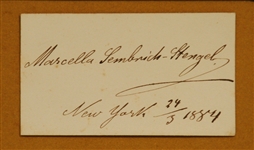 Marcella Sembrich-Stengel
New York 24/3 1884